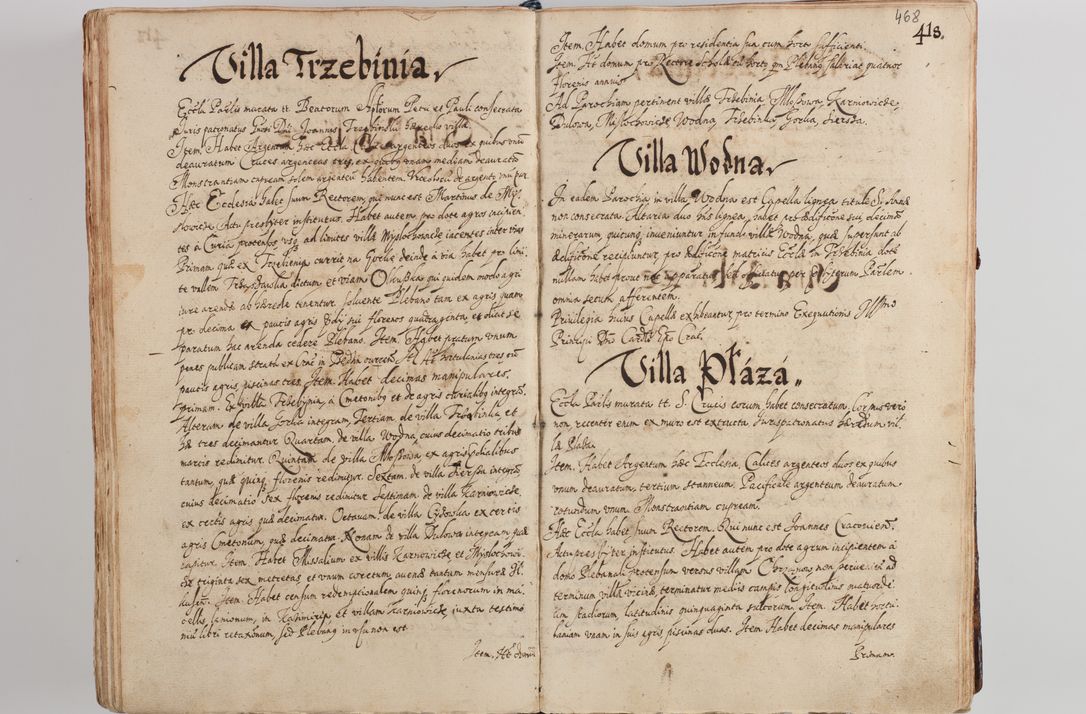 Villa Trzebinia
Eccla Paŕlis murata tt. Beatorum Aplorum Petri et Pauli consecrata
Iuris patronatus Gnosi Dni Joannis Trzebinski haeredis villae.
Item. Habet Argentum haec Eccla Calices argenteos duos ex quibus unus
deauratum Cruces argenteas tres, ex quibus unam mediam deauratam
Monstrantiam cupream solem argenteum habentem Viceolum de argento
Haec Ecclesia habet suum Rectorem, qui nunc est Martinus de My-
slowice Actu presbyter institutus. Habet autem pro dote agros incipien
tes a Curia protensos, usq ad limites villae Myslochowice iacentes inter vias
Primam quae ex Trzebinia currit na Gorke deinde a via habet pro limi-
te vallem dictum et viam Olkuska qui quidem modo agri
iure arendae ab haerede tenentur solvente Plebano tam ex agris quam
pro decima ex paucis agris florenos quadraginta, et dicit se
paratum hac arenda cedere Plebano. Item. Habet pratum unum
penes publicam stratam ex Crac in
paucis agris, piscinas tres. Item. Habet decimas manipulares,
primam. Ex villa Trzebynia, a Cmetonibus et de agris integram.
Alteram de villa Gorka integram, Tertiam de villa Trzebinka, et
hae tres decimantur Quartam, de villa Wodna, cuius decimatio tribus
marcis redimitur. Quintam de villa Mloszowa ex agris
tantum, quae quinq florenis redimitur. Sextam, de villa integram
cuius decimatio sex florenis redimitur Septimam, de villa Karniowice,
ex certis agris quae decimatur. Octavam, de villa ex certis
agris Cmetonum, quae decimatur. Nonam de villa Dulowa integram quae
capitur. Item. Habet Missalium ex villis Karnowicze et Myslochowi-
cze triginta sex metretas et unum coretum avenae tantum mensurae Il-
kusien. Item. Habet censum redemptionalem quinq florenorum in ma-
cellis, lanionum, in Kazimiria et villam Karniowicze, iuxta testimo-
nium libri retaxonum, sed Plebanus in usu non est.
Item. Ht domum
468
418.
Item. Habet domum pro residentia sua cum horto sufficienti.
Item. Ht domum pro Rectore Scholae cum horto quem Plebanus salariat quatuor
florenis annuis.
Ad Parochiam pertinent villae Trzebinia, Mloszowa, Karniowicze,
Dulowa, Myslochowicze, Wodna, Trzebinka, Gorka,
Villa Wodna
In eadem Parochia in villa Wodna est Capella lignea tituli S. Annae
non consecrata. Altaria duo his lignea, habet pro aedificatione sui, decimam
minerarum, quicunq inveniuntur in fundo villae Wodna, quae supersunt ab
aedificatione recipiuntur, pro aedificatione matricis Eccla in Trzebinia, dote
nullam habet prout nec apparatus, sed per Presbyterum Parlem
omnia secum afferentem.
Privilegia huius Capellae exhibeantur pro termino Exequutionis Illsmo
Principi Dno Cardli Epo Crac.
Villa Płázá
Eccla Parlis murata tt. S. Crucis eorum habet consecratum. Corpus vero
non, recenter enim ex muro est extructa. Iurispatronatus haeredum vil-
lae Plaza.
Item. Habet Argentum haec Ecclesia, Calices argenteos duos ex quibus
unum deauratum, tertium stanneum. Pacificale argenteum deauratum
rotundum unum Monstrantiam cupream.
Haec Eccla habet suum Rectorem. Qui nunc est Joannes Cracovien.
Actu presbyter institutus. Habet autem pro dote agrum incipientem a
domo Plebanali protensum versus villam Chrzanow non pervenit ad
terminum villae vicinae, terminatur mediis campis longitudinis quatuorde-
cim stadiorum, latitudinis quinquaginta sulcorum. Item. Habet hortu-
laniam unam in suis agris piscinas duas. Item. Habet decimas manipulares
Primam.